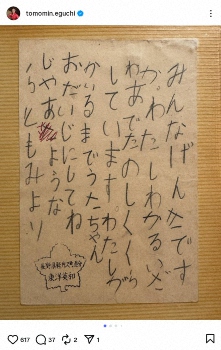 tomomin.eguchi
みんなげんきです
か。わたしわかるいざ
わあでたのしくくら
しています。わたしが
かいるまでうたちゃん
おだいじにしてね
じゃあさような
らともみより
長野県軽井沢
東洋英和
617 37 2 1